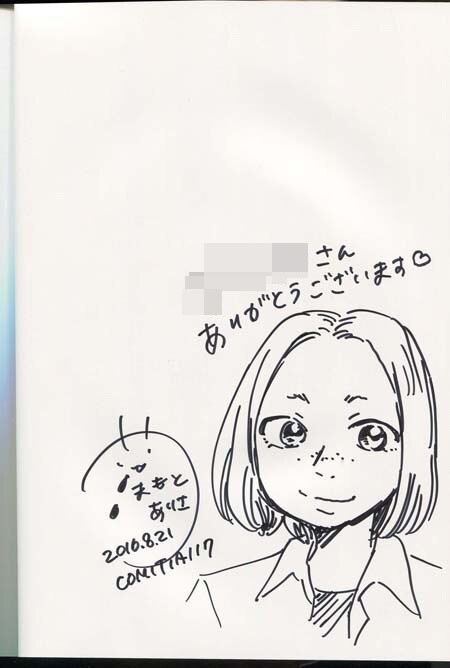 さん
ありがとうございます♡
まもと
ありさ
2016.8.21
COMITIA117